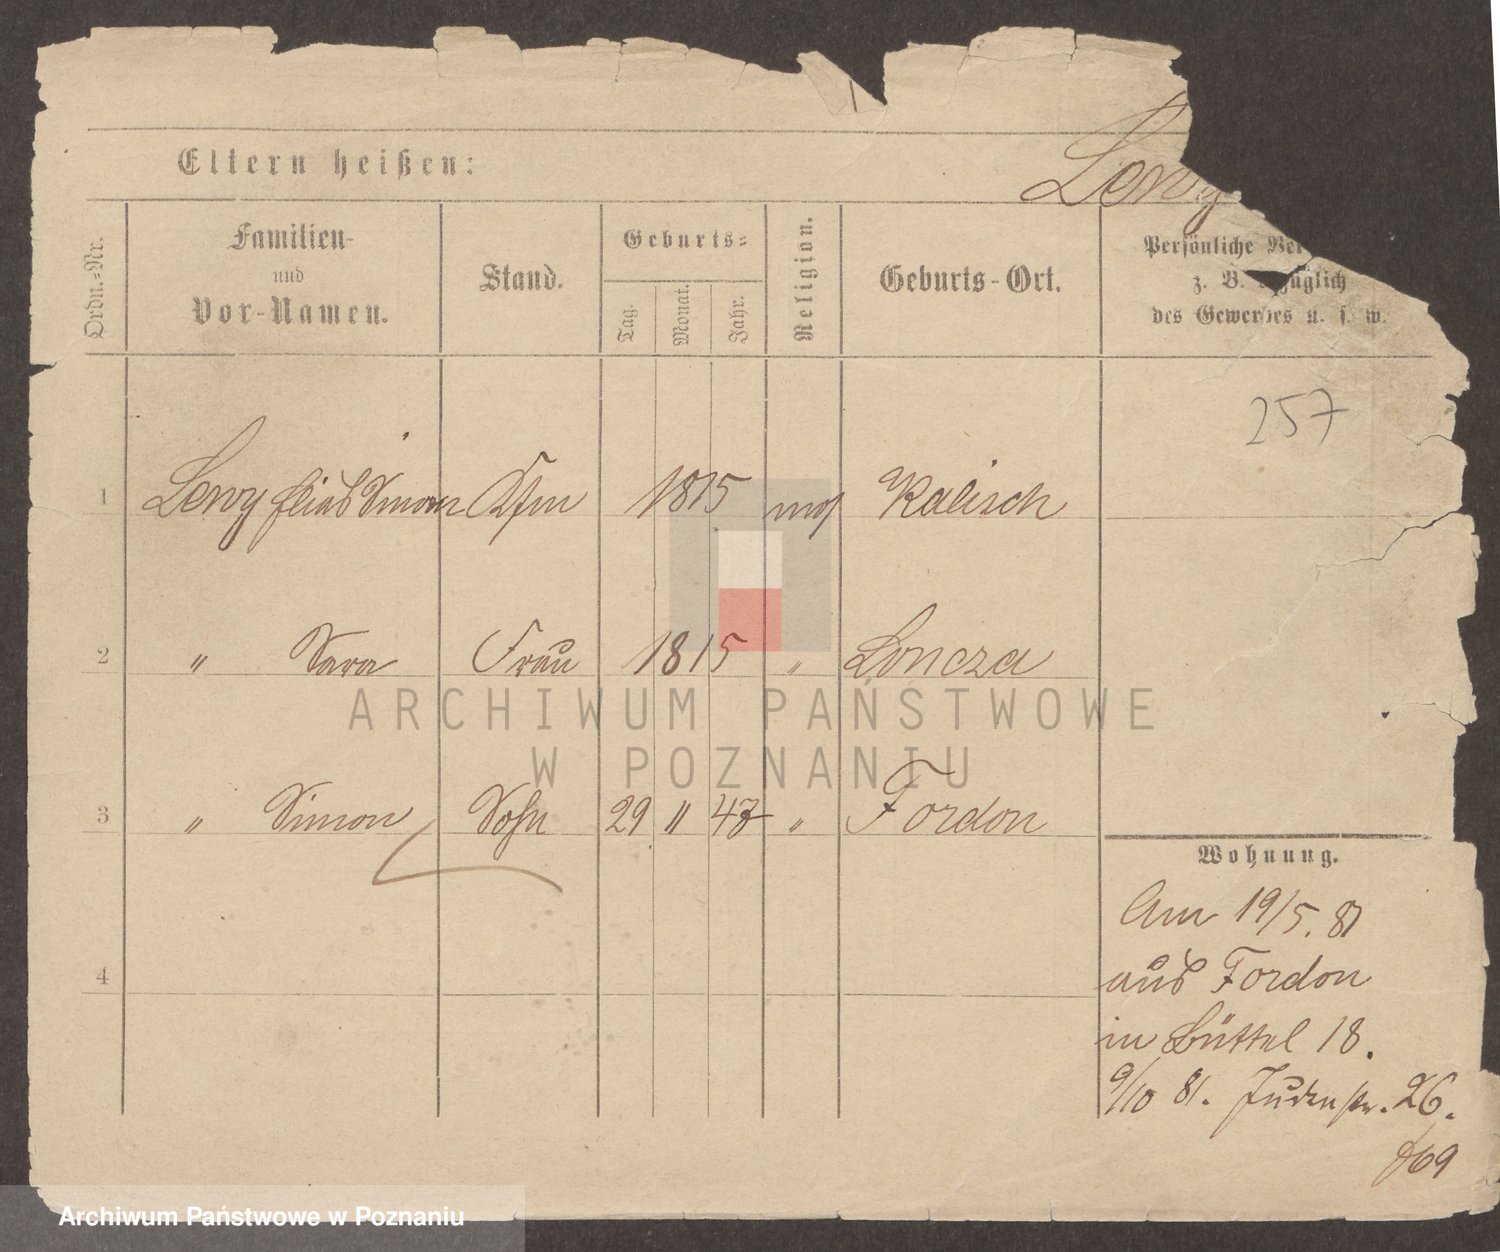 Eltern heißen:
Lewy
Ordn.-Nr.
Familien-
und
Vor-Namen.
Stand.
Geburts-
Tag.
Monat.
Jahr.
Religion.
Geburts-Ort.
Persönliche
z. B.
des Gewerbes u. s. w.
257
1 Lewy Elias Simon Kfm 1815 mos Kalisch
2 " Sara Frau 1815 " Loncza
3 " Simon Sohn 29 " 47 " Fordon
4
Wohnung.
Am 19/5. 81
aus Fordon
in Büttel 18.
9/10 81. Judenstr. 26.
ARCHIWUM PAŃSTWOWE
W POZNANIU
Archiwum Państwowe w Poznaniu